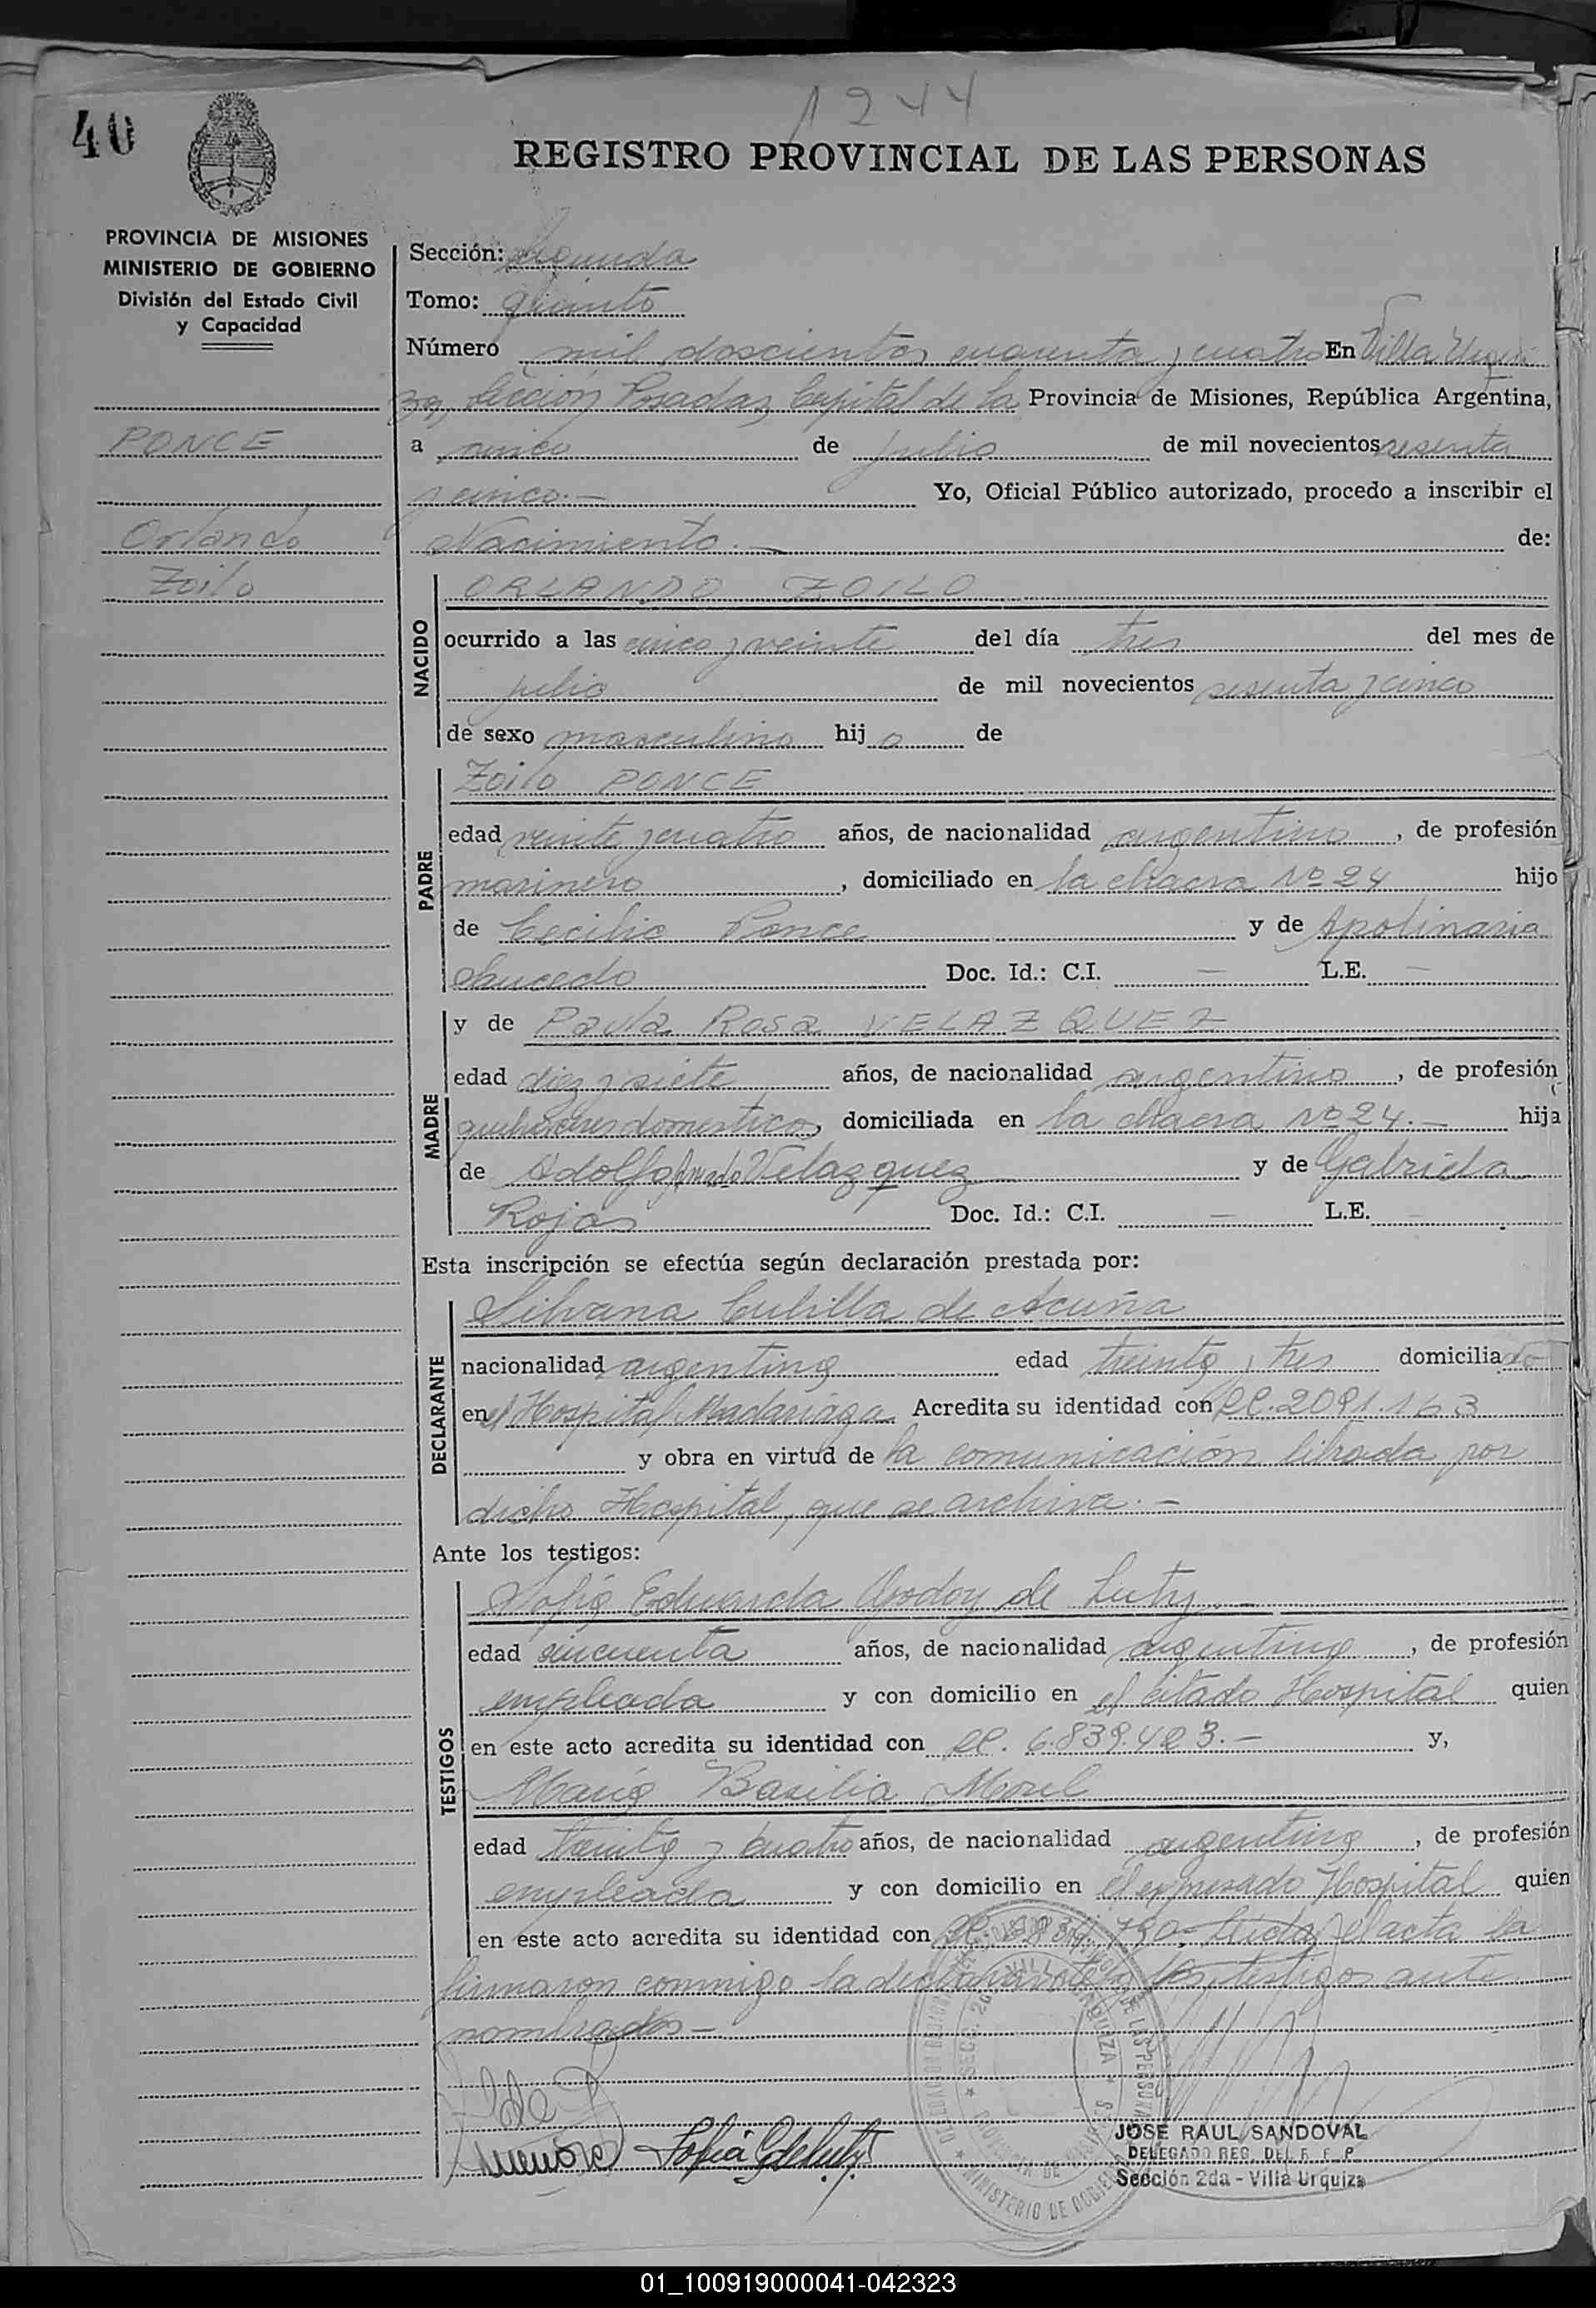 1244
40
REGISTRO PROVINCIAL DE LAS PERSONAS
PROVINCIA DE MISIONES
MINISTERIO DE GOBIERNO
División del Estado Civil
y Capacidad
PONCE
Orlando
Zoilo
Sección: segunda
Tomo: quinto
Número mil doscientos cuarenta y cuatro En Villa Urqui
za, Sección Posadas, Capital de la Provincia de Misiones, República Argentina,
a cinco de julio de mil novecientos sesenta
y cinco.— Yo, Oficial Público autorizado, procedo a inscribir el
Nacimiento.— de:
NACIDO
ORLANDO ZOILO
ocurrido a las cinco y veinte del día tres del mes de
julio de mil novecientos sesenta y cinco
de sexo masculino hijo de
PADRE
Zoilo PONCE
edad veinte y cuatro años, de nacionalidad argentino, de profesión
marinero, domiciliado en la chacra Nº 24 hijo
de Cecilio Ponce y de Apolinaria
Saucedo Doc. Id.: C.I. — L.E. —
MADRE
y de Paula Rosa VELAZQUEZ
edad diez y siete años, de nacionalidad argentina, de profesión
quehaceres domesticos, domiciliada en la chacra Nº 24.— hija
de Adolfo Amado Velazquez y de Gabriela
Rojas Doc. Id.: C.I. — L.E. —
Esta inscripción se efectúa según declaración prestada por:
DECLARANTE
Silvana Cubilla de Acuña
nacionalidad argentina edad treinta y tres domicilia
en el Hospital Madariaga Acredita su identidad con LC. 2091.163
y obra en virtud de la comunicación librada por
dicho Hospital, que se archiva.—
Ante los testigos:
TESTIGOS
Sofía Eduarda Godoy de Lutz.—
edad cincuenta años, de nacionalidad argentina, de profesión
empleada y con domicilio en el citado Hospital quien
en este acto acredita su identidad con LC. 6.839.423.— y,
María Basilia Morel
edad treinta y cuatro años, de nacionalidad argentina, de profesión
empleada y con domicilio en el expresado Hospital quien
en este acto acredita su identidad con LC. Leida el acta la
firmaron conmigo la declarante y los testigos ante
nombrados—
Sofia G de Lutz
JOSE RAUL SANDOVAL
DELEGADO REG. DEL R. P. P.
Sección 2da - Villa Urquiza
MINISTERIO DE GOBIERNO
01_100919000041-042323